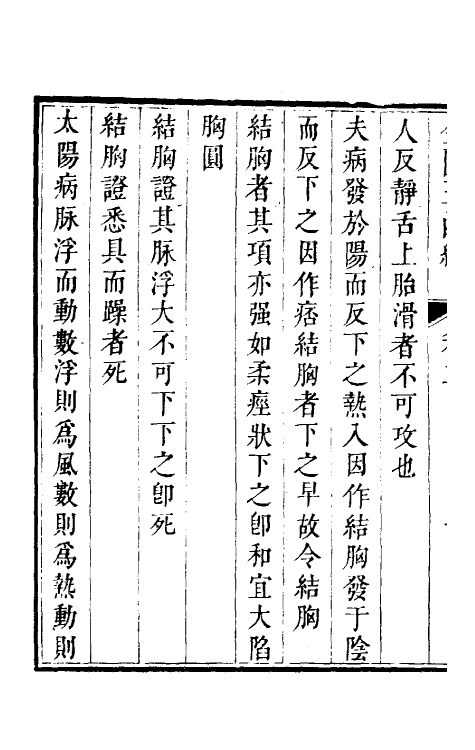 人反靜舌上胎滑者不可攻也
夫病發於陽而反下之熱入因作結胸發于陰
而反下之因作痞結胸者下之早故令結胸
結胸者其項亦强如柔痓狀下之卽和宜大陷
胸圓
結胸證其脉浮大不可下下之卽死
結胸證悉具而躁者死
太陽病脉浮而動數浮則爲風數則爲熱動則